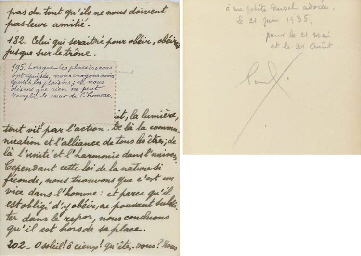 pas du tout qu'ils ne nous doivent
pas leur amitié.
182. Celui qui serait né pour obéir, obéirait
jusque sur le trône.
195. Lorsque les plaisirs nous
ont épuisés, nous croyons avoir
épuisé les plaisirs; et nous
disons que rien ne peut
remplir le cœur de l'homme.
la lumière,
tout vit par l'action. De là la commu-
nication et l'alliance de tous les êtres; de
là l'unité et l'harmonie dans l'univers.
Cependant cette loi de la nature si
féconde, nous trouvons que c'est un
vice dans l'homme: et parce qu'il
est obligé d'y obéir, ne pouvant subsis-
ter dans le repos, nous concluons
qu'il est hors de sa place.
202 - O soleil! ô cieux! qu'êtes-vous? Nous
à ma petite
le 21 juin 1935,
pour le 21 mai
et le 31 août
Paul